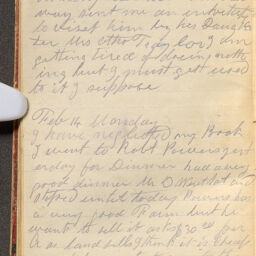 way sent me an invitation
to visit him by his Daugh
ter Mrs Otho I am
getting tired of doing noth
ing but I must get used
to it I suppose
Feb 14 Monday
I have neglected my Book
I went to Robt Powers yest
erday for Dinner had a very
good dinner Mr O West but and
stopred until today Powers has
a very good Farm but he
want to sell it at 30.00 per
A as land sells I think it is cheap